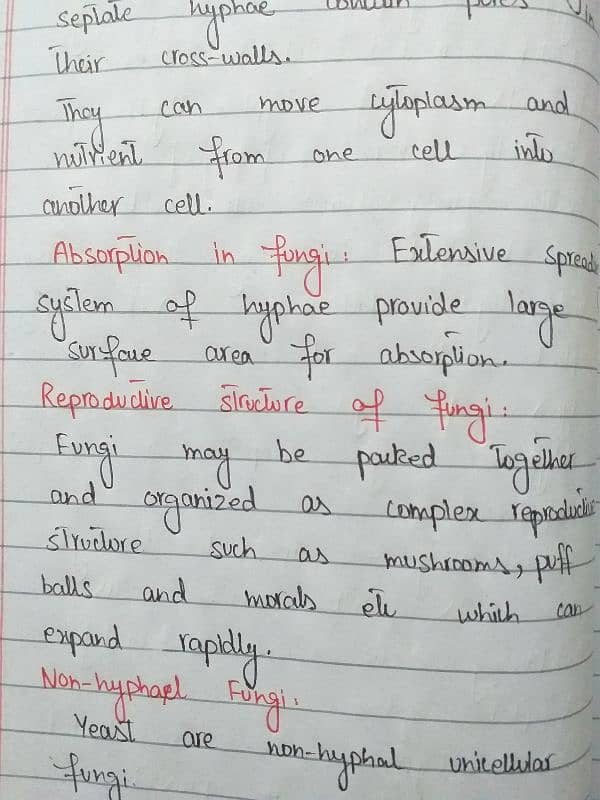 septate hyphae contain pores in
Their cross-walls.
They can move cytoplasm and
nutrient from one cell into
another cell.
Absorption in fungi: Extensive spread
system of hyphae provide large
surface area for absorption.
Reproductive structure of fungi:
Fungi may be packed Together
and organized as complex reproductive
structure such as mushrooms, puff
balls and morals etc which can
expand rapidly.
Non-hyphael Fungi:
Yeast are non-hyphal unicellular
fungi.